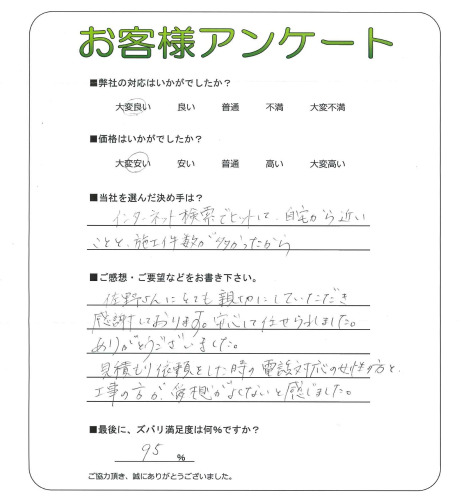 お客様アンケート
■弊社の対応はいかがでしたか?
大変良い 良い 普通 不満 大変不満
■価格はいかがでしたか?
大変安い 安い 普通 高い 大変高い
■当社を選んだ決め手は?
インターネット検索でヒットして、自宅から近い
ことと、施工件数が多かったから
■ご感想・ご要望などをお書き下さい。
佐野さんにとても親切にしていただき
感謝しております。安心して任せられました。
ありがとうございました。
見積もり依頼をした時の電話対応の女性の方と、
工事の方が、愛想がよくないと感じました。
■最後に、ズバリ満足度は何%ですか?
95 %
ご協力頂き、誠にありがとうございました。